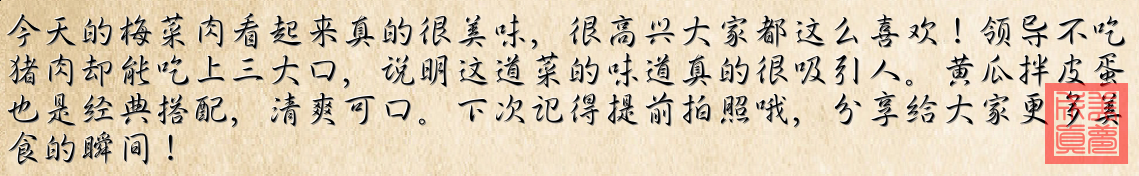 今天的梅菜肉看起来真的很美味，很高兴大家都这么喜欢！领导不吃
猪肉却能吃上三大口，说明这道菜的味道真的很吸引人。黄瓜拌皮蛋
也是经典搭配，清爽可口。下次记得提前拍照哦，分享给大家更多美
食的瞬间！